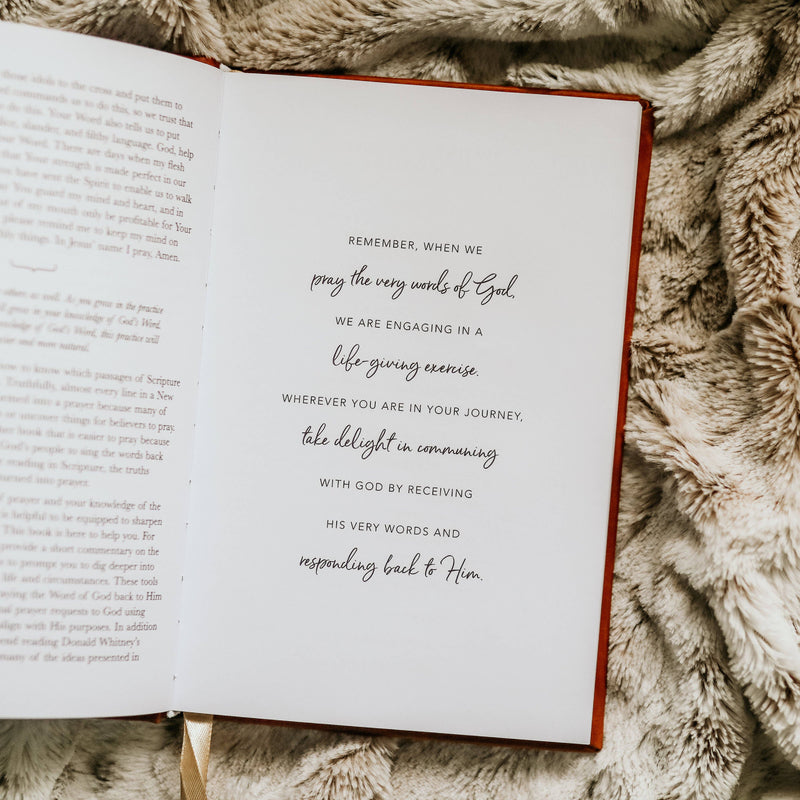 those idols to the cross and put them to
commands us to do this, so we trust that
do this. Your Word also tells us to put
slander, and filthy language. God, help
Word. There are days when my flesh
that Your strength is made perfect in our
have sent the Spirit to enable us to walk
You guard my mind and heart, and in
of my mouth only be profitable for Your
please remind me to keep my mind on
things. In Jesus' name I pray, Amen.
others as well. As you grow in the practice
grow in your knowledge of God's Word,
knowledge of God's Word, this practice will
and more natural.
how to know which passages of Scripture
Truthfully, almost every line in a New
turned into a prayer because many of
or uncover things for believers to pray.
book that is easier to pray because
God's people to sing the words back
reading in Scripture, the truths
turned into prayer.
prayer and your knowledge of the
is helpful to be equipped to sharpen
This book is here to help you. For
provide a short commentary on the
to prompt you to dig deeper into
life and circumstances. These tools
praying the Word of God back to Him
prayer requests to God using
align with His purposes. In addition
reading Donald Whitney's
many of the ideas presented in
REMEMBER, WHEN WE
pray the very words of God,
WE ARE ENGAGING IN A
life-giving exercise.
WHEREVER YOU ARE IN YOUR JOURNEY,
take delight in communing
WITH GOD BY RECEIVING
HIS VERY WORDS AND
responding back to Him.